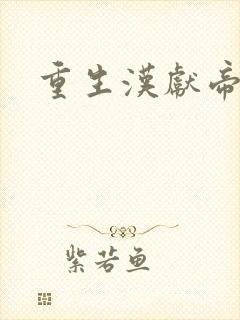 重生漢獻帝
紫若魚